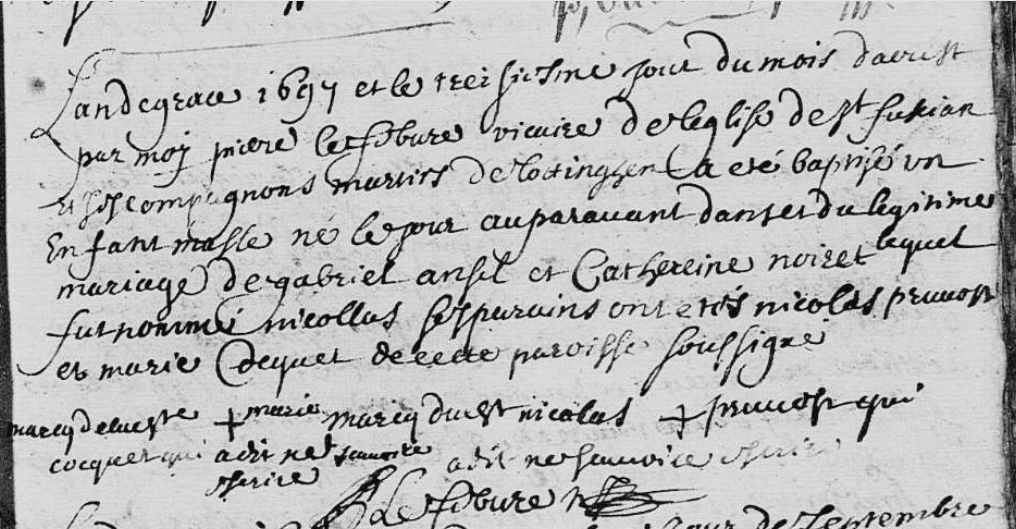 Landegrace 1697 et le treisiesme jour du mois daoust
par moy piere lefebure vicaire de leglise de st fusian
et ses compagnons martirs de lottinghen a eté baptisé un
enfant masle né le jour auparavant dans et du legitime
mariage de gabriel ansel et Cathereine noiret lequel
fut nommé nicollas ses parains ont etés nicolas pruvost
et marie Cocquet de cette paroisse soussigné
marcq de + marie marcq nicolas + pruvost qui
cocquet qui a dit ne scavoire a dit ne scavoire escrire
escrire
Lefebure
jour de septembre